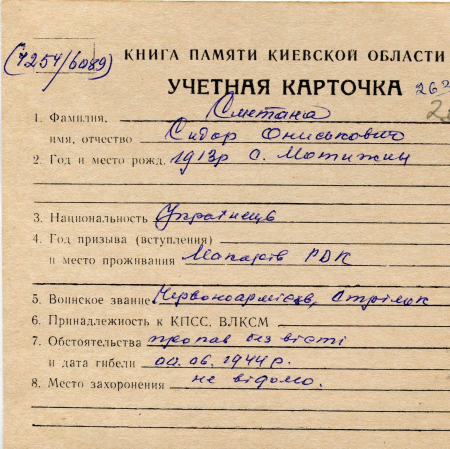 (7254/6089)
КНИГА ПАМЯТИ КИЕВСКОЙ ОБЛАСТИ
УЧЕТНАЯ КАРТОЧКА
1. Фамилия, Сметана
имя, отчество Сидор Ониськович
2. Год и место рожд. 1913р с. Мотижин
3. Национальность Українець
4. Год призыва (вступления)
и место проживания Макарів РВК
5. Воинское звание Червоноармієць, Стрілок
6. Принадлежность к КПСС, ВЛКСМ
7. Обстоятельства пропав без вісті
и дата гибели 00.06.1944р.
8. Место захоронения не відомо.